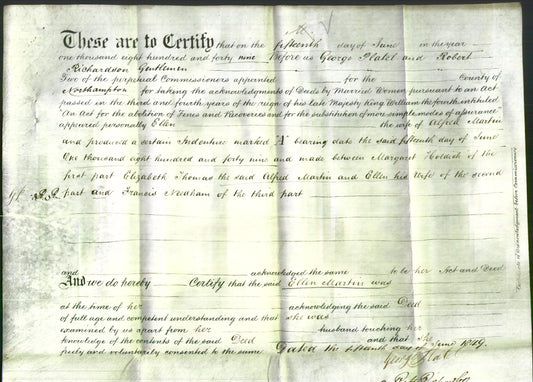 These are to Certify that on the fifteenth day of June in the year
one thousand eight hundred and forty nine before us George Platel and Robert
Richardson Gentlemen
Two of the perpetual Commissioners appointed for the County of
Northampton for taking the acknowledgments of Deeds by Married Women pursuant to an Act
passed in the third and fourth years of the reign of his late Majesty King William the fourth intituled
An Act for the abolition of Fines and Recoveries and for the substitution of more simple modes of assurance
appeared personally Ellen the wife of Alfred Martin
and produced a certain Indenture marked A bearing date the said fifteenth day of June
One thousand eight hundred and forty nine and made between Margaret Holdich of the
first part Elizabeth Thomas the said Alfred Martin and Ellen his Wife of the second
part and Francis Needham of the third part
and acknowledged the same to be her Act and Deed
And we do hereby Certify that the said Ellen Martin was
at the time of her acknowledging the said Deed
of full age and competent understanding and that she was
examined by us apart from her husband touching her
knowledge of the contents of the said Deed and that She
freely and voluntarily consented to the same Dated the fifteenth day of June 1849.
Geo: Platel